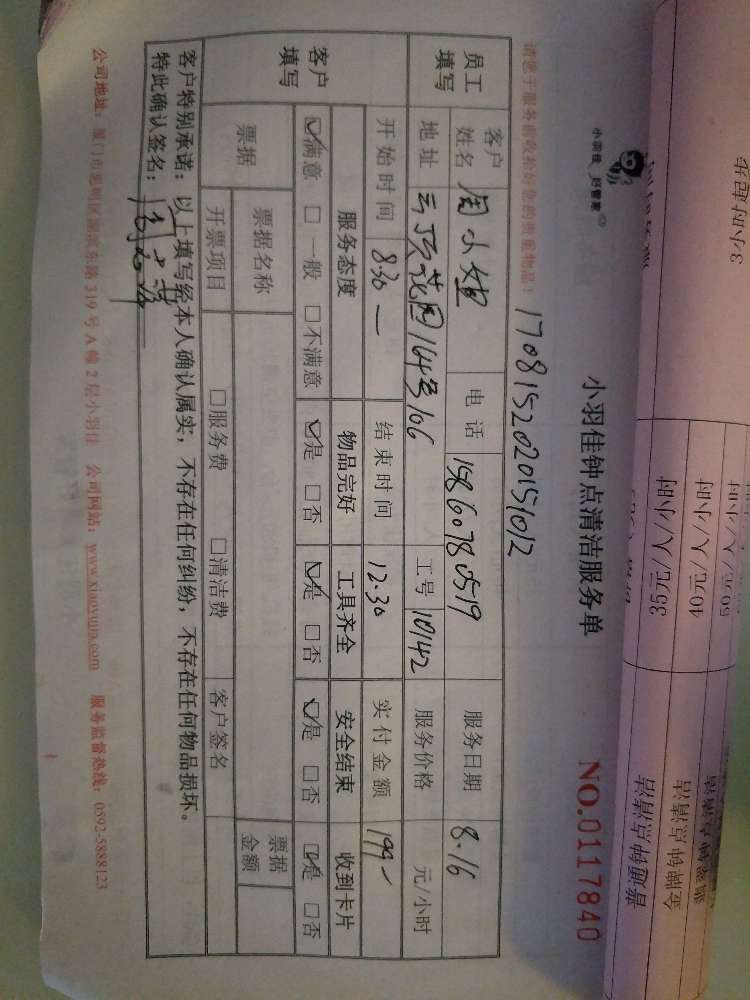 小羽佳 好管家
小羽佳钟点清洁服务单
NO.0117840
请您于服务前收拾好您的贵重物品!
1708152020151012
员工填写
客户姓名 周小姐 电话 15860780519 服务日期 8.16
地址 云顶花园164号106 工号 10142 服务价格 元/小时
客户填写
开始时间 830 — 结束时间 12.30 实付金额 199
服务态度 物品完好 工具齐全 安全结束 收到卡片
☑满意 □一般 □不满意 ☑是 □否 ☑是 □否 ☑是 □否 ☑是 □否
票据 票据名称 票据金额
开票项目 □服务费 □清洁费 客户签名
客户特别承诺:以上填写经本人确认属实,不存在任何纠纷,不存在任何物品损坏。
特此确认签名:
公司地址:厦门市思明区湖滨东路319号A幢2层小羽佳 公司网站:www.xiaoyujia.com 服务监督热线:0592-5888123
3小时起步
35元/人/小时
40元/人/小时
普通钟点清洁
金牌钟点清洁